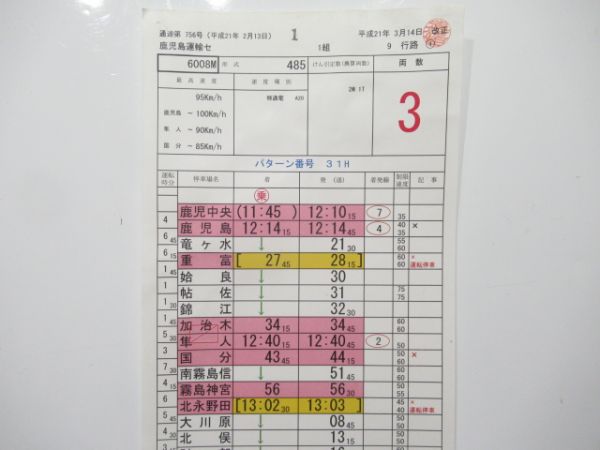 通達第 756号 (平成21年 2月13日) 1 平成21年 3月14日 改正
鹿児島運輸セ 1組 9 行路 ①
6008M 形式 485 けん引定数(換算両数) 両数
最高速度 速度種別 3
95Km/h 特通電 A20
鹿児島 ~ 100Km/h
隼人 ~ 90Km/h
国分 ~ 85Km/h
パターン番号 31H
運転時分 停車場名 着 発 (通) 着発線 制限速度 記事
乗
鹿児中央 (11:45 ) 12:10 15 7 35
4 鹿児島 12:14 15 12:14 45 4 40 35 ×
6 45 竜ヶ水 ↓ 21 30 55 60
6 15 重富 [ 27 45 28 15 ] 60 60 × 運転停車
1 45 姶良 ↓ 30
1 帖佐 ↓ 31 75 75
1 30 錦江 ↓ 32 30
1 45 加治木 34 15 34 45 60 60
5 30 隼人 12:40 15 12:40 45 2 50
3 国分 43 45 44 15 50 ×
7 30 南霧島信 ↓ 51 45
4 15 霧島神宮 56 56 30 50 50
6 北永野田 [ 13:02 30 13:03 ] 45 40 × 運転停車
5 45 大川原 ↓ 08 45 50 50
4 30 北俣 ↓ 13 15